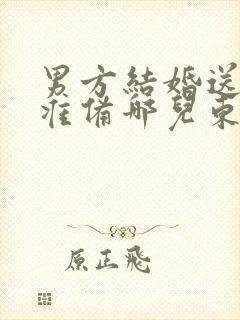 男方結婚送
准備哪兒東
原正飛